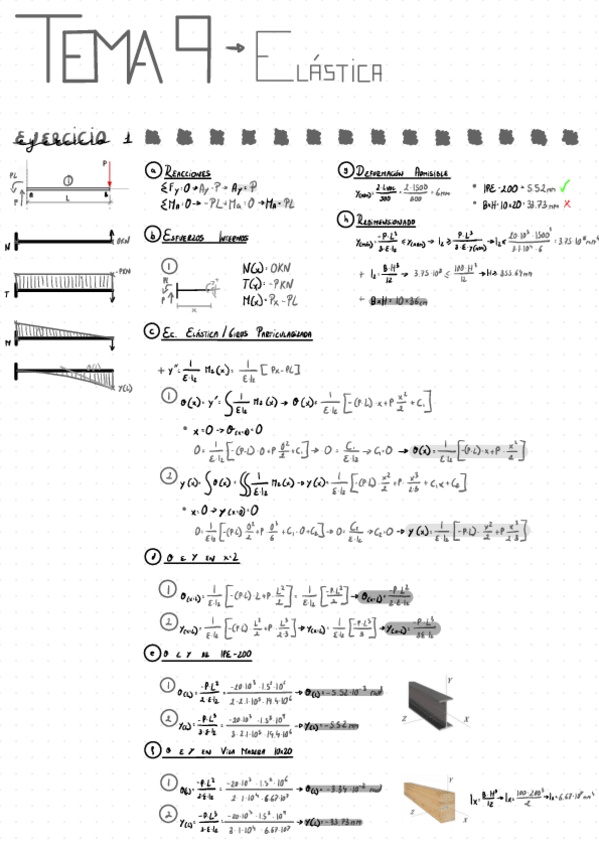 TEMA 9 → ELÁSTICA
EJERCICIO 1
a REACCIONES
ΣFy=0→Ay-P→Ay=P
ΣMA=0→-PL+MA=0→MA=PL
b ESFUERZOS INTERNOS
1
N(x)=0KN
T(x)=-PKN
M(x)=Px-PL
PL
P
x
PL
P
1
A
B
L
N
0KN
T
-PKN
M
y(L)
c EC. ELÁSTICA/GIROS PARTICULARIZADA
+ y''=1/E·Iz Mz(x)=1/E·Iz[Px-PL]
1 θ(x)=y'=∫1/E·Iz Mz(x)→θ(x)=1/E·Iz[-(P·L)·x+P x²/2+C1]
• x=0→θ(x=0)=0
0=1/E·Iz[-(P·L)·0+P 0²/2+C1]→0=C1/E·Iz→C1=0→θ(x)=1/E·Iz[-(P·L)·x+P·x²/2]
2 y(x)=∫θ(x)=∬1/E·Iz Mz(x)→y(x)=1/E·Iz[-(P·L)·x²/2+P·x³/2·3+C1x+C2]
• x=0→y(x=0)=0
0=1/E·Iz[-(P·L)0²/2+P 0³/6+C1·0+C2]→0=C2/E·Iz→C2=0→y(x)=1/E·Iz[-P·L·x²/2+P x³/2·3]
d θ E Y EN X=L
1 θ(x=L)=1/E·Iz[-(P·L)·L+P·L²/2]=1/E·Iz[-P·L²/2]→θ(x=L)=-P·L²/2·E·Iz
2 y(x=L)=1/E·Iz[-(P·L)·L²/2+P·L³/2·3]→y(x=L)=1/E·Iz[-P·L³/3]→y(x=L)=-P·L³/3E·Iz
e θ E Y IPE-200
1 θ(L)=-P·L²/2·E·Iz=-20·10³·1.5²·10⁶/2·2.1·10⁵·19.4·10⁶→θ(L)=-5.52·10⁻³ rad
2 y(L)=-P·L³/3·E·Iz=-20·10³·1.5³·10⁹/3·2.1·10⁵·19.4·10⁶→y(L)=-5.52mm
Y
Z
X
f θ E Y EN VIGA MADERA 10x20
1 θ(L)=-P·L²/2·E·Iz=-20·10³·1.5²·10⁶/2·1·10⁴·6.67·10⁷→θ(L)=-3.34·10⁻² rad
2 y(L)=-P·L³/3·E·Iz=-20·10³·1.5³·10⁹/3·1·10⁴·6.67·10⁷→y(L)=-33.73mm
Y
Z
X
Ix=B·H³/12→Ix=100·200³/12→Ix=6.67·10⁷mm⁴
g DEFORMACIÓN ADMISIBLE
=2·1500/500=6mm
• IPE-200=5.52mm ✓
• BxH=10x20=33.73mm ✗
h REDIMENSIONADO
+ Iz=B·H³/12→3.75·10⁸≤100·H³/12→H≥355.69mm
+ BxH=10x36cm